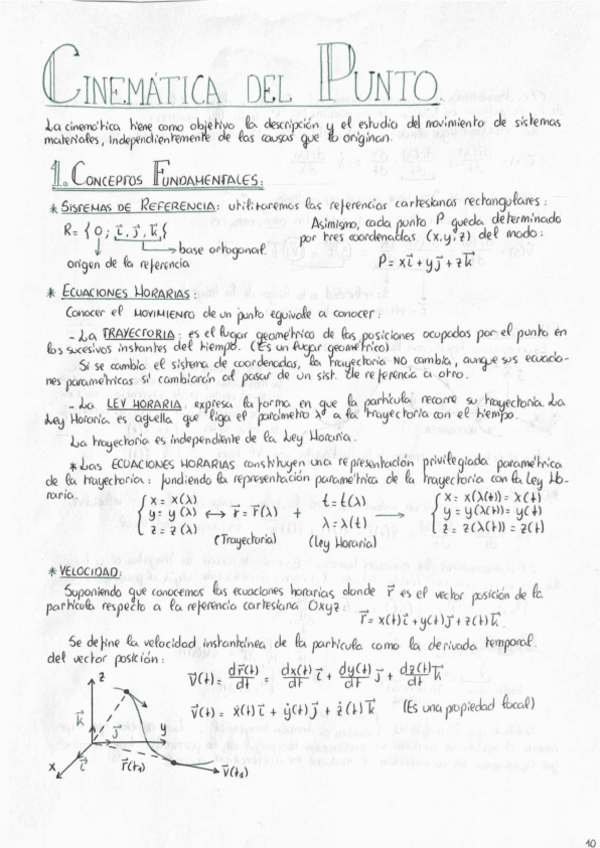 CINEMÁTICA DEL PUNTO.
La cinemática tiene como objetivo la descripción y el estudio del movimiento de sistemas
materiales, independientemente de las causas que lo originan.
1. CONCEPTOS FUNDAMENTALES:
* SISTEMAS DE REFERENCIA: utilizaremos las referencias cartesianas rectangulares:
R = { O; i⃗, j⃗, k⃗ {
base ortogonal.
origen de la referencia
Asimismo, cada punto P queda determinado
por tres coordenadas (x,y,z) del modo:
P = xi⃗ + yj⃗ + zk⃗
* ECUACIONES HORARIAS:
Conocer el MOVIMIENTO de un punto equivale a conocer:
- La TRAYECTORIA: es el lugar geométrico de las posiciones ocupadas por el punto en
los sucesivos instantes del tiempo. (Es un lugar geométrico)
Si se cambia el sistema de coordenadas, la trayectoria NO cambia, aunque sus ecuacio-
nes paramétricas sí cambiarán al pasar de un sist. de referencia a otro.
- La LEY HORARIA, expresa la forma en que la partícula recorre su trayectoria. La
Ley Horaria es aquella que liga el parámetro λ a la trayectoria con el tiempo.
La trayectoria es independiente de la Ley Horaria.
* Las ECUACIONES HORARIAS constituyen una representación privilegiada paramétrica
de la trayectoria: fundiendo la representación paramétrica de la trayectoria con la Ley Ho-
raria.
{ x = x(λ) t = t(λ) { x = x(λ(t)) = x(t)
y = y(λ) ↔ r⃗ = r⃗(λ) + → y = y(λ(t)) = y(t)
z = z(λ) λ = λ(t) z = z(λ(t)) = z(t)
(Trayectoria) (Ley Horaria)
* VELOCIDAD:
Suponiendo que conocemos las ecuaciones horarias donde r⃗ es el vector posición de la
partícula respecto a la referencia cartesiana Oxyz.
r⃗ = x(t)i⃗ + y(t)j⃗ + z(t)k⃗
Se define la velocidad instantánea de la partícula como la derivada temporal
del vector posición:
v⃗(t) = dr⃗(t)/dt = dx(t)/dt i⃗ + dy(t)/dt j⃗ + dz(t)/dt k⃗
v⃗(t) = ẋ(t)i⃗ + ẏ(t)j⃗ + ż(t)k⃗ (Es una propiedad local)
z
k⃗
j⃗
y
x
i⃗
r⃗(t₁)
v⃗(t₁)
10